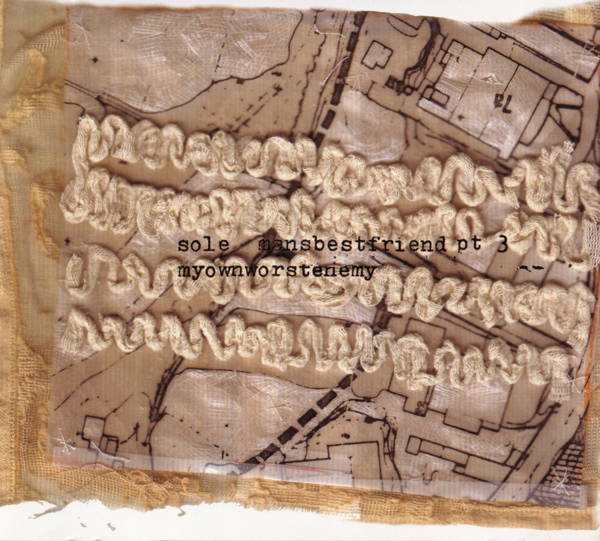 7a
sole mansbestfriend pt 3
myownworstenemy